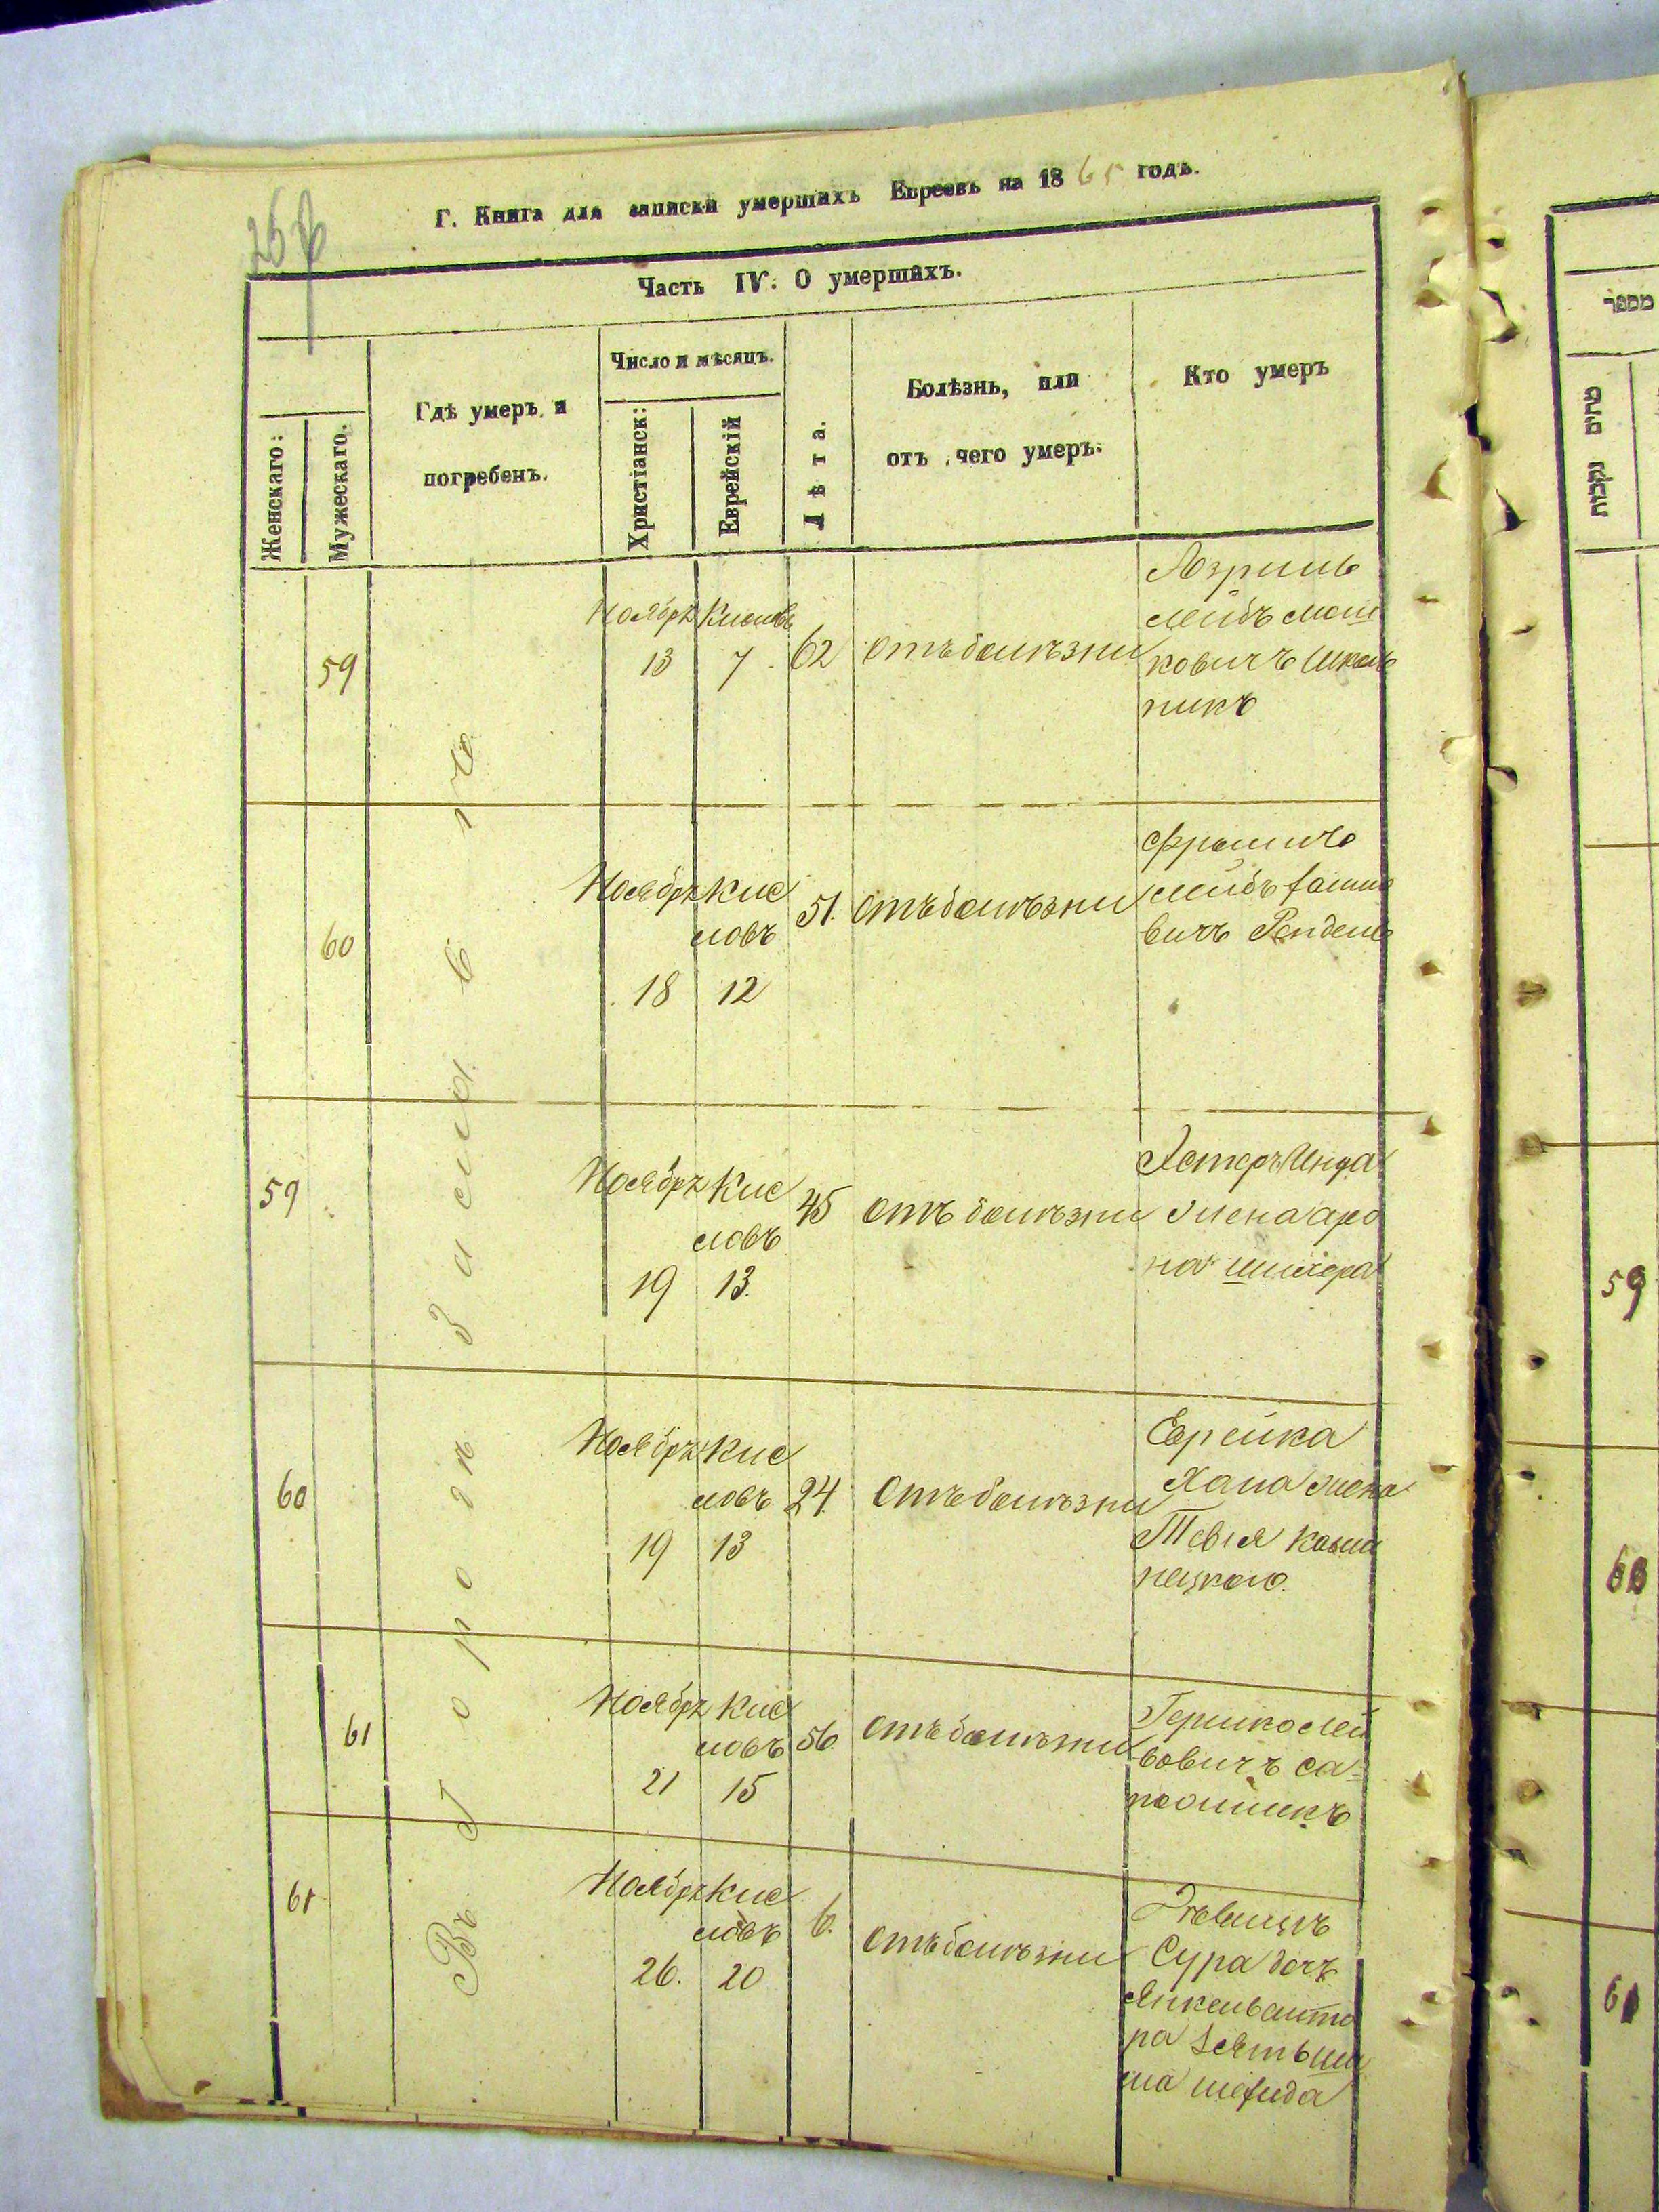 Г. Книга для записки умершихъ Евреевъ на 1865 годъ.
Часть IV. О умершихъ.
Женскаго:
Мужескаго.
Гдѣ умеръ и
погребенъ.
Число и мѣсяцъ.
Христіанск:
Еврейскій
Лѣта.
Болѣзнь, или
отъ чего умеръ.
Кто умеръ
Въ Городѣ Заславѣ
59
Ноябрь
13
7
62
отъ болѣзни
Азриль
Лейбъ Мош
ковичъ Школь
никъ
60
Ноябрь
18
Кис
ловъ
12
51.
отъ болѣзни
Лейбъ
вичъ
59
Ноябрь
19
Кис
ловъ
13.
45
отъ болѣзни
Эстеръ Инда
жена Аро
на
60
Ноябрь
19
Кис
ловъ
13
24.
отъ болѣзни
Еврейка
Хана жена
Тевія Каме
нецкого.
61
Ноябрь
21
Кис
ловъ
15
56.
отъ болѣзни
Гершко Лей
бовичъ Са=
пожникъ
61
Ноябрь
26.
Кис
ловъ
20
6.
отъ болѣзни
Дѣвица
Сура дочь
מספר
זכרים
נקבות
59
60
61